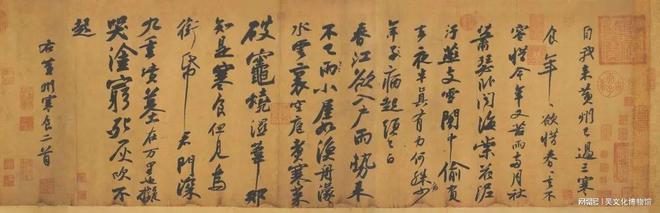 自我來黃州已過三寒
食年〻欲惜春〻去不
容惜今年又苦雨兩月秋
蕭瑟臥聞海棠花泥
汙燕支雪闇中偷負
去夜半真有力何殊少
年子病起頭已白
春江欲入戶雨勢來
不已雨小屋如漁舟濛〻
水雲裏空庖煮寒菜
破竈燒濕葦那
知是寒食但見烏
銜帋君門深
九重墳墓在萬里也擬
哭塗窮死灰吹不
起
右黃州寒食二首
网易号 | 吴文化博物馆